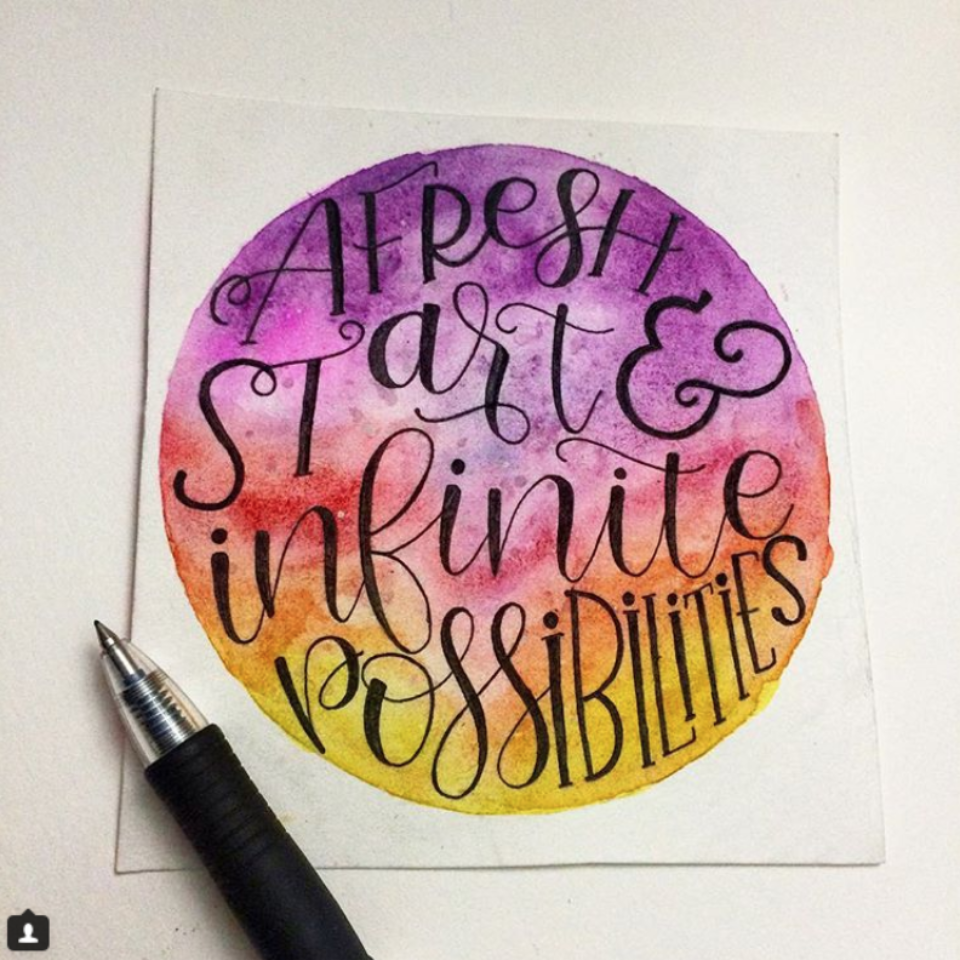 A FResH
STart &
infinite
POssiBiLiTiES